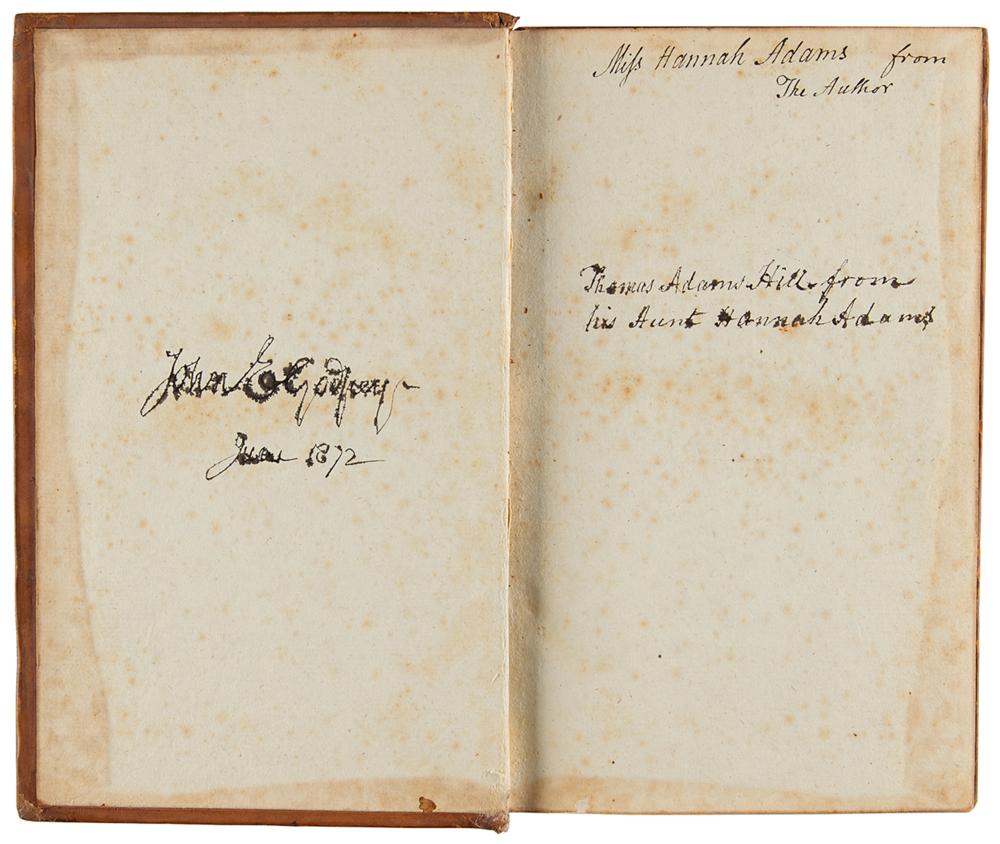 John E Godfrey
June 1872
Miſs Hannah Adams from
The Author
Thomas Adams Hill from
his Aunt Hannah Adams